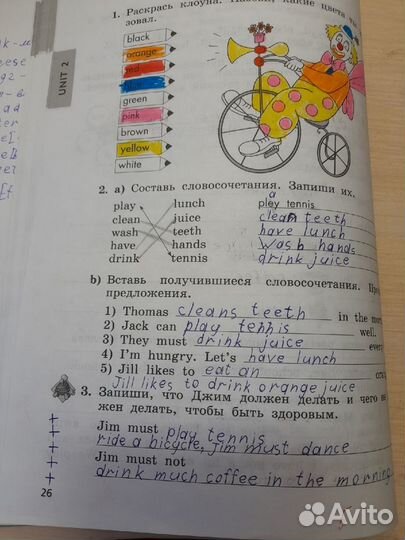 1. Раскрась клоуна. Назови, какие цвета ты
зовал.
black
orange
red
blue
green
pink
brown
yellow
white
UNIT 2
2. а) Составь словосочетания. Запиши их.
play lunch play tennis
clean juice clean teeth
wash teeth have lunch
have hands wash hands
drink tennis drink juice
b) Вставь получившиеся словосочетания.
предложения.
1) Thomas cleans teeth in the
2) Jack can play tennis well.
3) They must drink juice
4) I'm hungry. Let's have lunch
5) Jill likes to eat an
Jill likes to drink orange juice
3. Запиши, что Джим должен делать и чего не
жен делать, чтобы быть здоровым.
Jim must play tennis
ride a bicycle, Jim must dance
Jim must not
drink much coffee in the morning
26
Avito